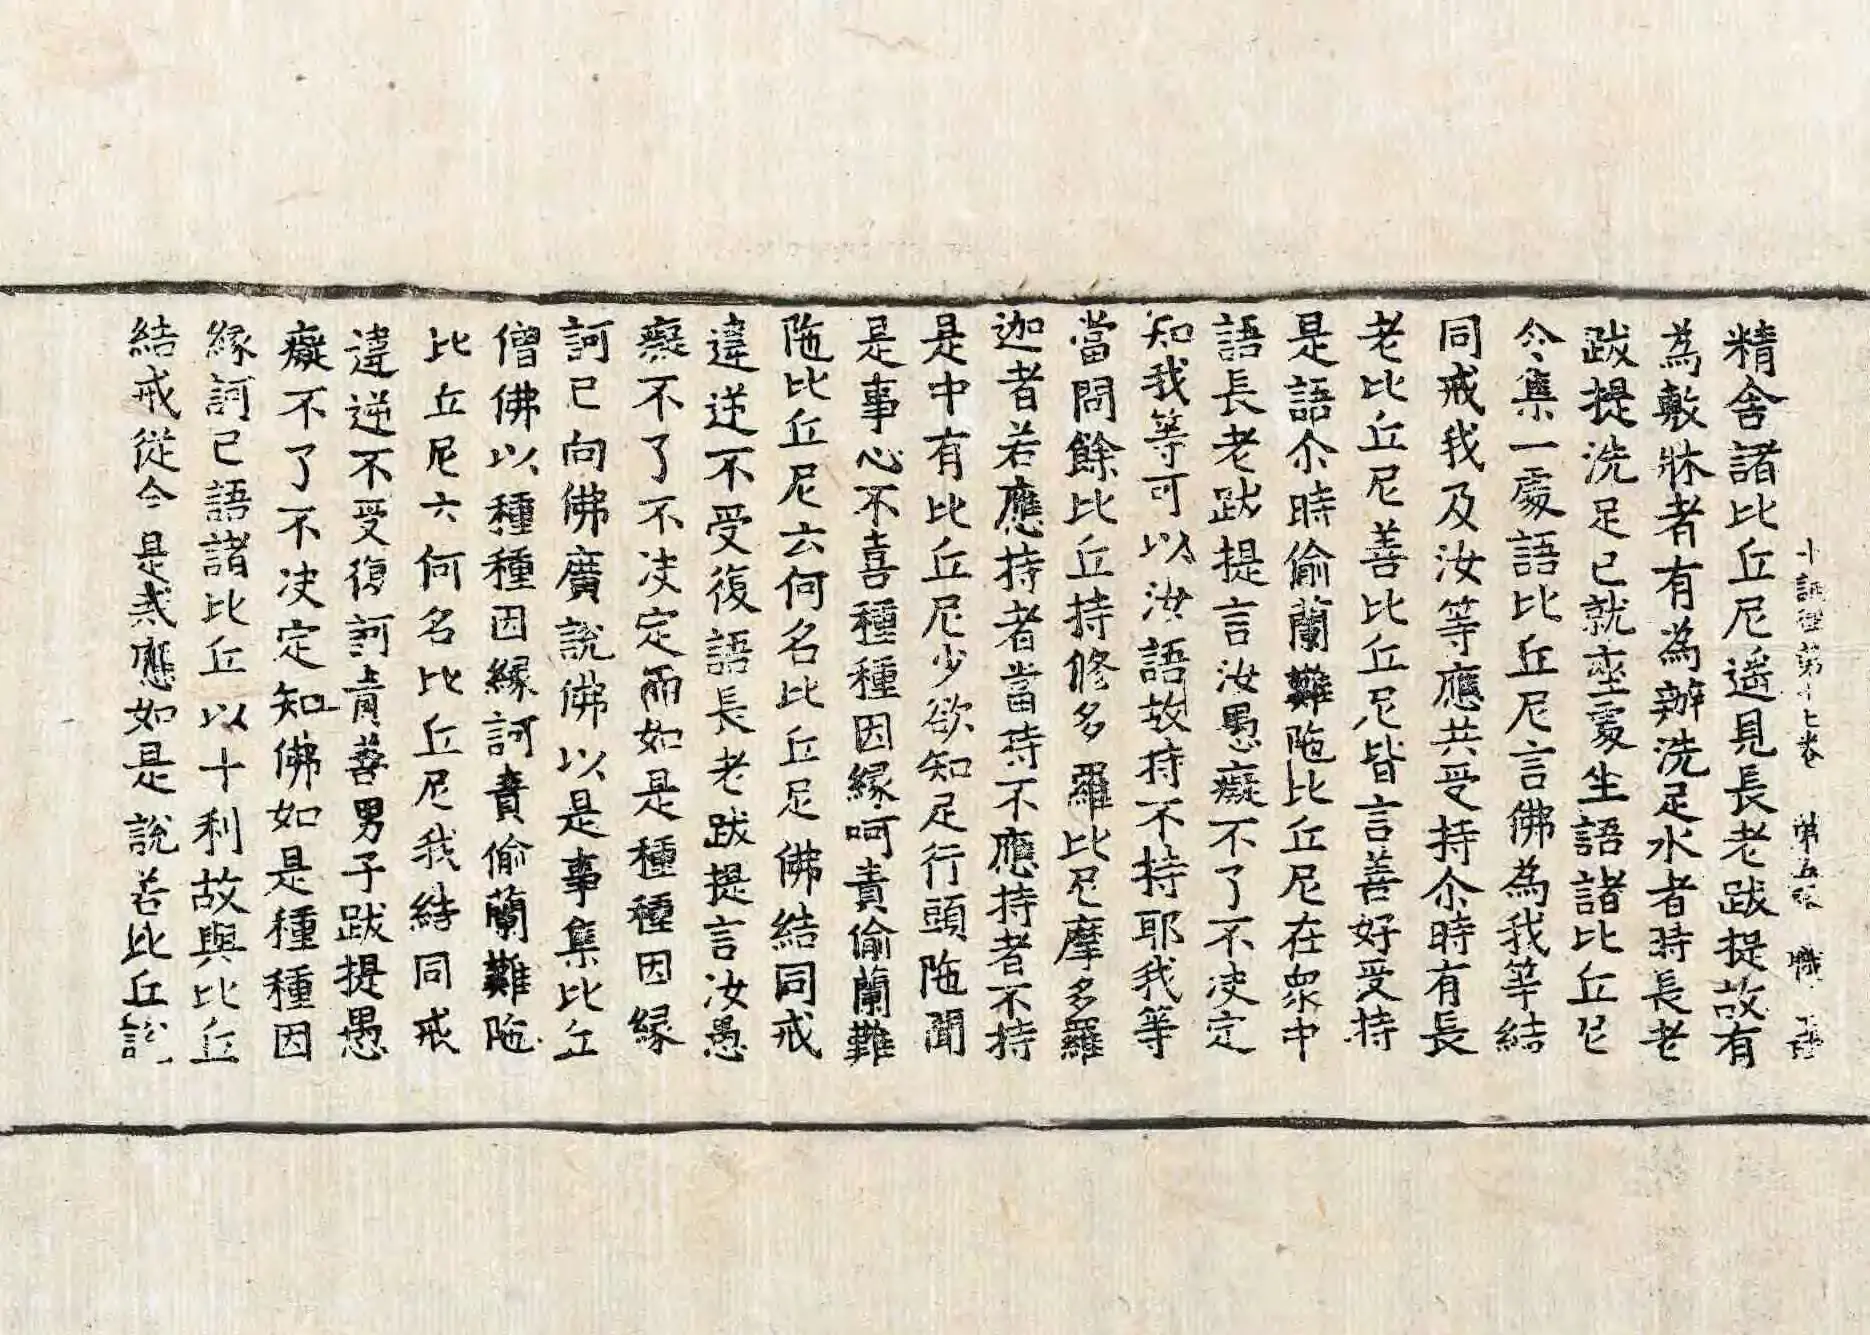 十誦律第十七卷　第五張　職
精舍諸比丘尼遥見長老跋提故有
為敷牀者有為辦洗足水者時長老
跋提洗足已就坐處坐語諸比丘尼
令集一處語比丘尼言佛為我等結
同戒我及汝等應共受持尒時有長
老比丘尼善比丘尼皆言善好受持
是語尒時偷蘭難陁比丘尼在衆中
語長老跋提言汝愚癡不了不决定
知我等可以汝語故持不持耶我等
當問餘比丘持修多羅比尼摩多羅
迦者若應持者當持不應持者不持
是中有比丘尼少欲知足行頭陁聞
是事心不喜種種因緣呵責偷蘭難
陁比丘尼云何名比丘尼佛結同戒
違逆不受復語長老跋提言汝愚
癡不了不决定而如是種種因緣
訶已向佛廣說佛以是事集比丘
僧佛以種種因緣訶責偷蘭難陁
比丘尼云何名比丘尼我結同戒
違逆不受復訶責善男子跋提愚
癡不了不决定知佛如是種種因
緣訶已語諸比丘以十利故與比丘
結戒從今是戒應如是說若比丘說